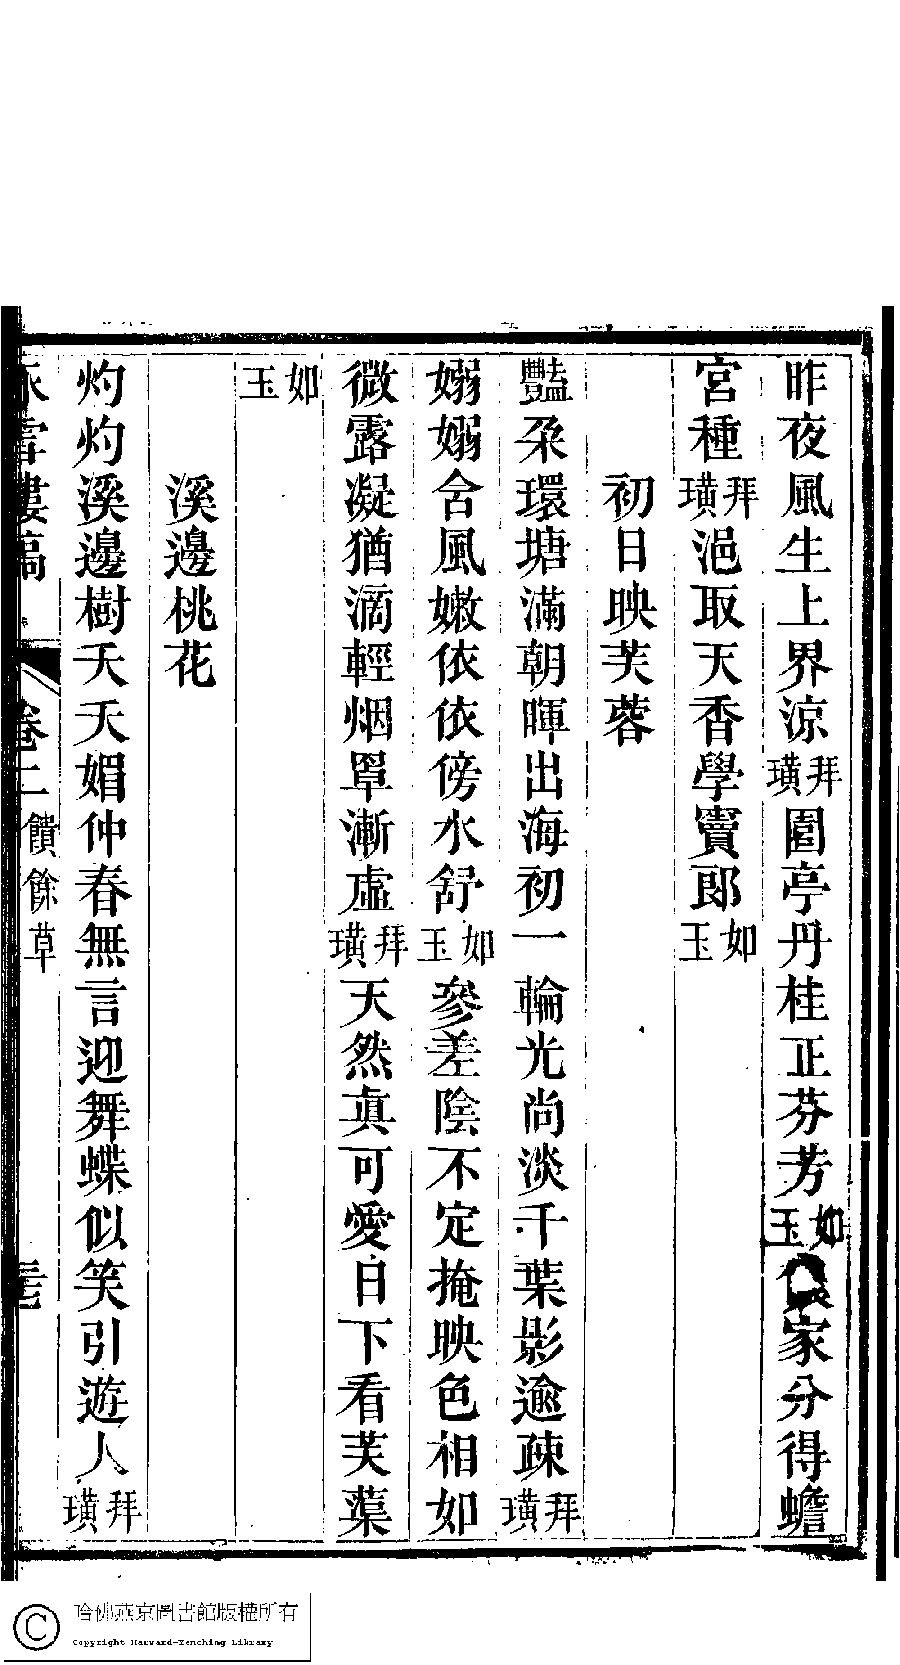 昨夜風生上界涼拜璜園亭丹桂正芬芳如玉家分得蟾
宮種拜璜浥取天香學竇郎如玉
初日映芙蓉
豔朶環塘滿朝暉出海初一輪光尚淡千葉影逾疎拜璜
嫋嫋含風嫩依依傍水舒如玉參差陰不定掩映色相如
微露凝猶滴輕烟罩漸虛拜璜天然真可愛日下看芙蕖
如玉
溪邊桃花
灼灼溪邊樹夭夭媚仲春無言迎舞蝶似笑引遊人拜璜
雪樓稿 卷二 饋餘草
哈佛燕京圖書館版權所有
Copyright Harvard-Yenching Library